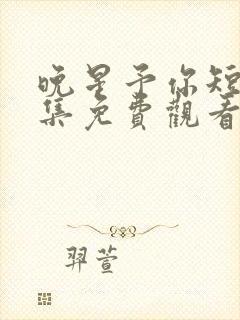 晚星予你短
集免費觀看
羿萱